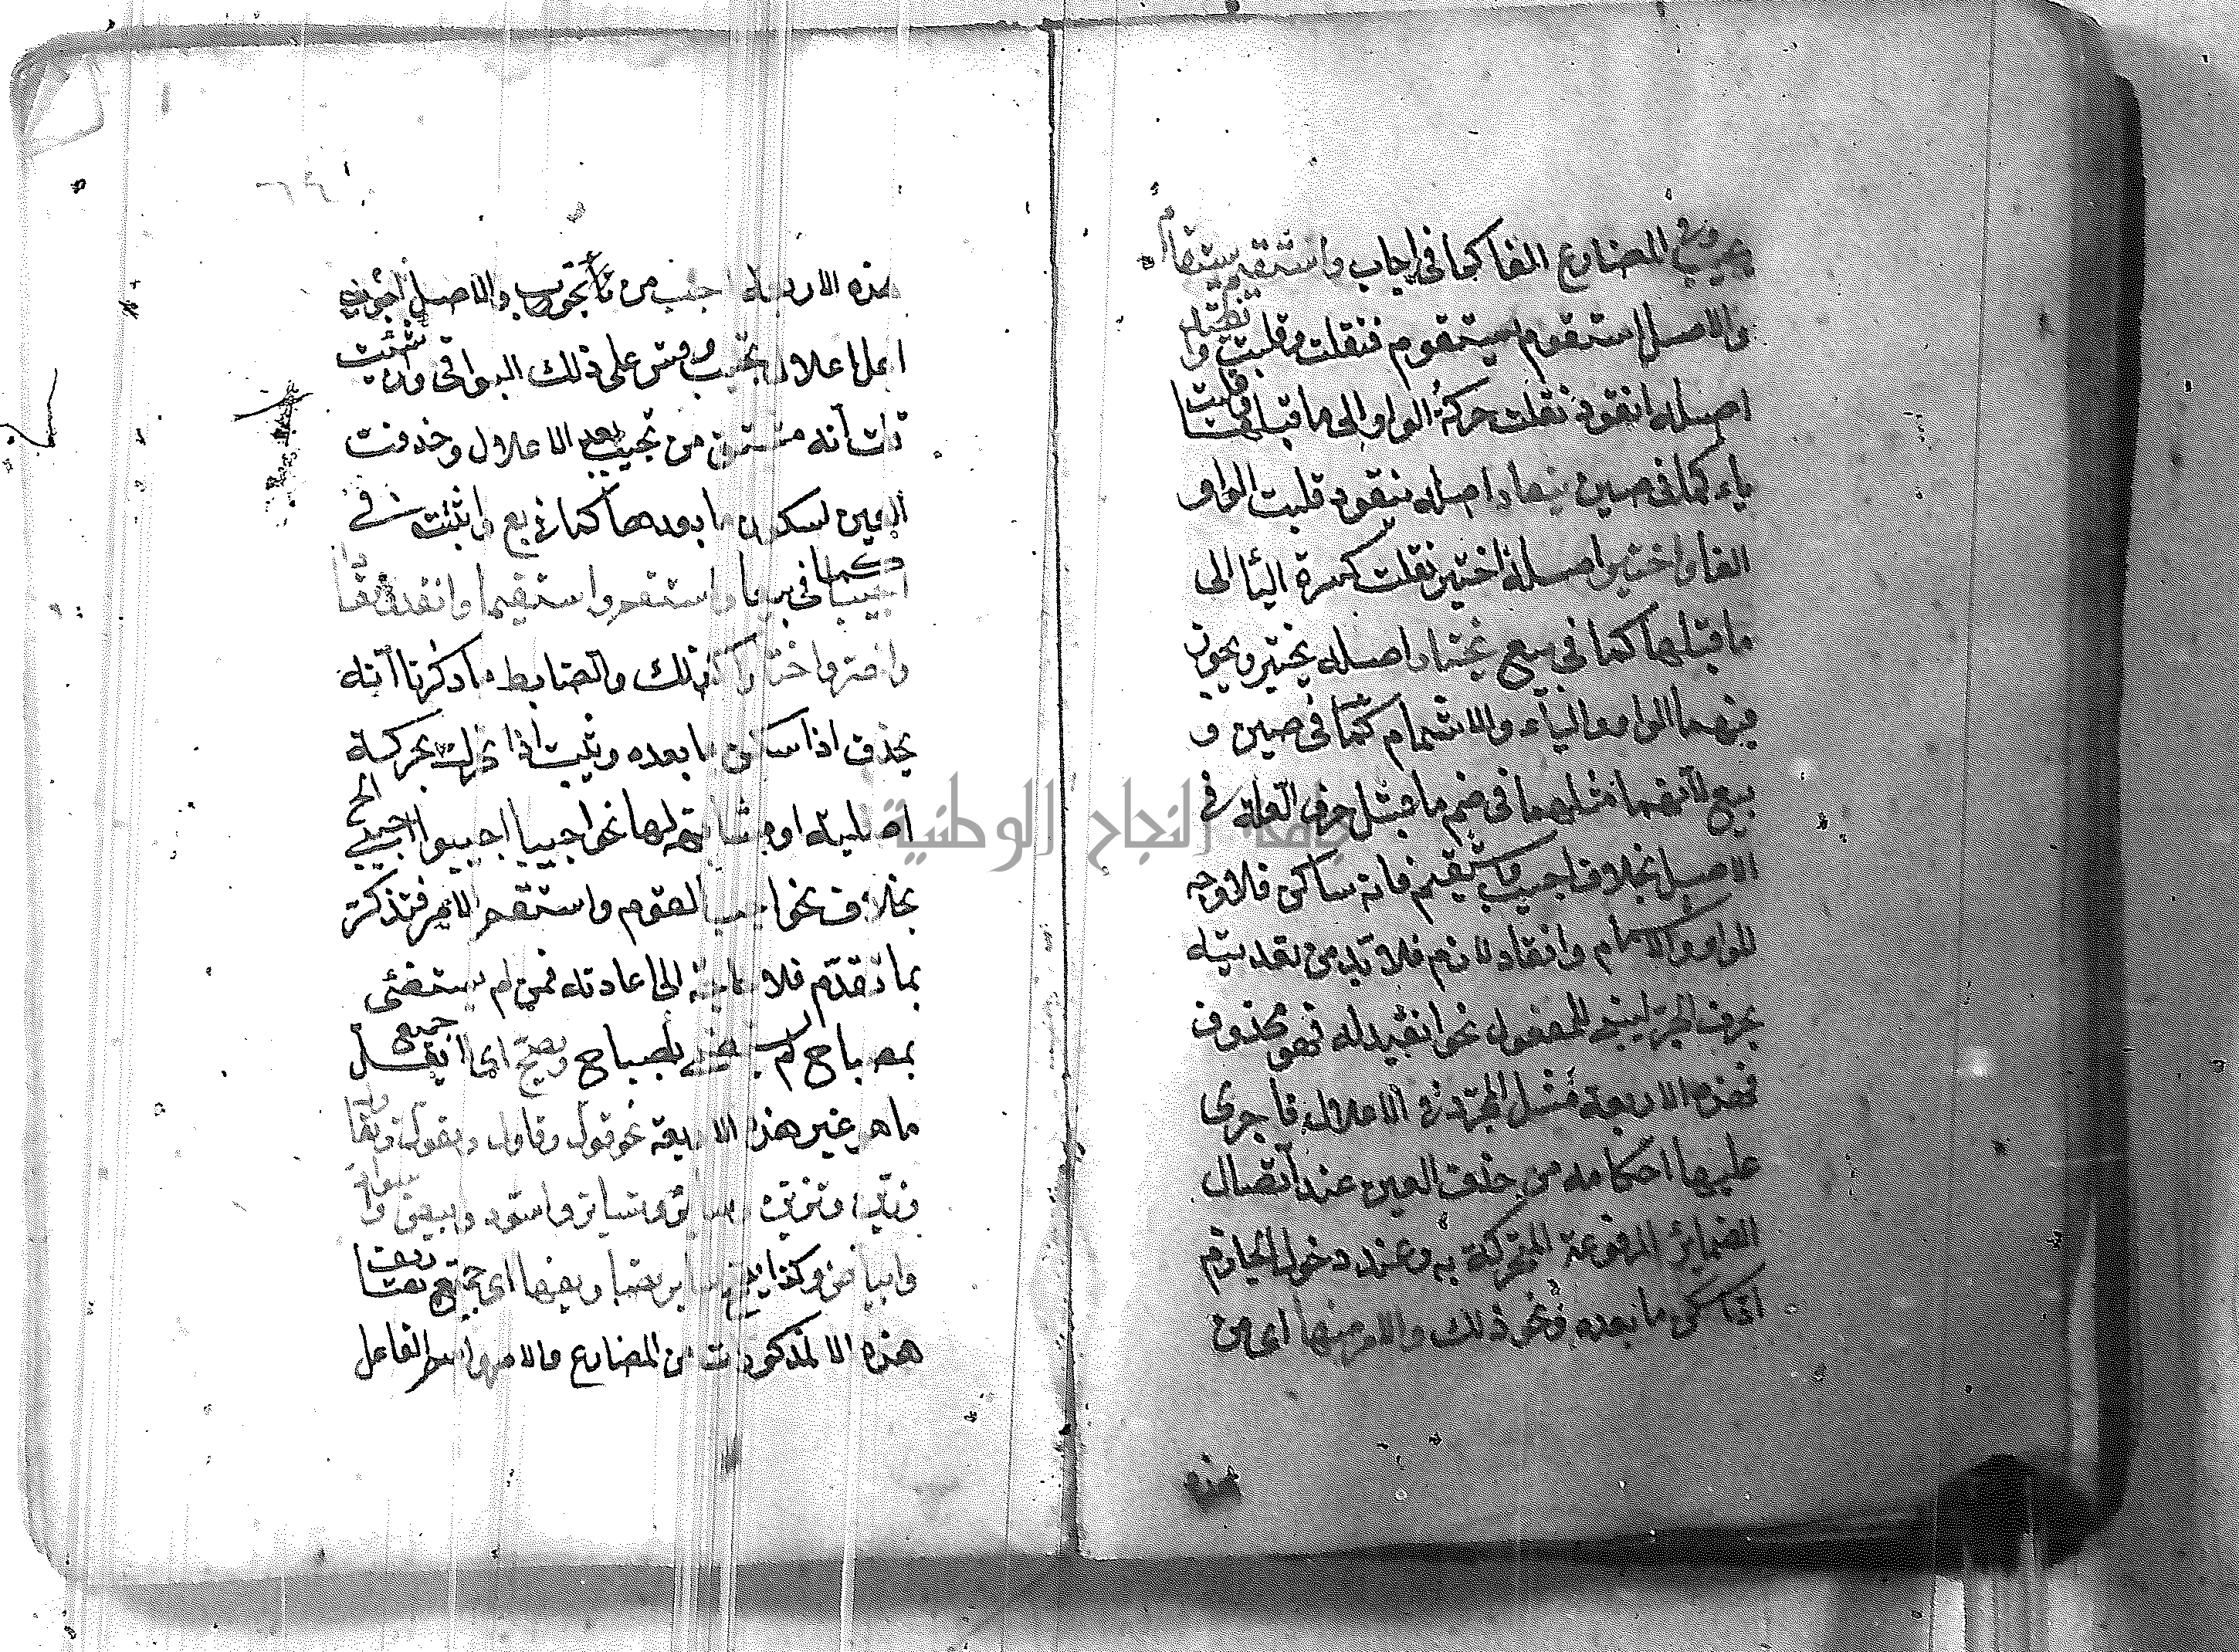 وفي المضارع الفا كما في اجاب واستقيم يستقام
والاصل استقوم يستقوم فنقلت وقلبت وا
اصله انقود نقلت حركة الواو الى ما قبلها وقلبت
ياء كما في صين ينقاد اصله ينقود قلبت الواو
الفا واختير اصله اختير نقلت كسرة اليا الى
ما قبلها كما في بيع يختار اصله يختير ويجوز
فيهما الواو والياء والاشمام كما في صين و
بيع لانهما مثلهما في ضم ما قبل حرف العلة في
الاصل بخلاف اجيب واستقيم فانه ساكن فلا وجه
للواو والاشمام وانقاد لازم فلا بد من تعديته
بحرف الجر ليبنى للمفعول نحو انقيد له فهو محذوف
فهذه الاربعة مثل المجرد في الاعلال فاجرى
عليها احكامه من حذف العين عند اتصال
الضماير المرفوعة المتحركة به وعند دخول الجازم
اذا سكن ما بعده ونحو ذلك والامر منها اى من
هذه
هذه الاربعة اجب من تجوب والاصل اجوب
اعل اعلال تجيب وقس على ذلك البواقى وان شئت
قلت انه مشتق من تجيب بعد الاعلال وحذفت
العين لسكون ما بعدها كما في بع واثبتت في
اجيبا كما في بيعا واستقم واستقيما وانقد وانقادا
واختر واختارا كذلك والضابط ما ذكرنا انه
يحذف اذا سكن ما بعده ويثبت اذا تحرك بحركة
اصلية او مشابهة لها نحو اجيبا اجيبوا اجيبي الخ
بخلاف نحو اجب القوم واستقم الامر فتذكر
بما تقدم فلا حاجة الى اعادته فمن لم يستضئ
بمصباح لم يستضئ باصباح ويصح اى لا يعل جميع
ما هو غير هذه الاربعة نحو قول وقاول وتقول وتقا
وزين وتزين وساير وتساير واسود وابيض واسواد
وابياض وكذا يصح ساير تصاريفها اى جميع تصاريف
هذه المذكورات من المضارع والامر واسم الفاعل
جامعة النجاح الوطنية